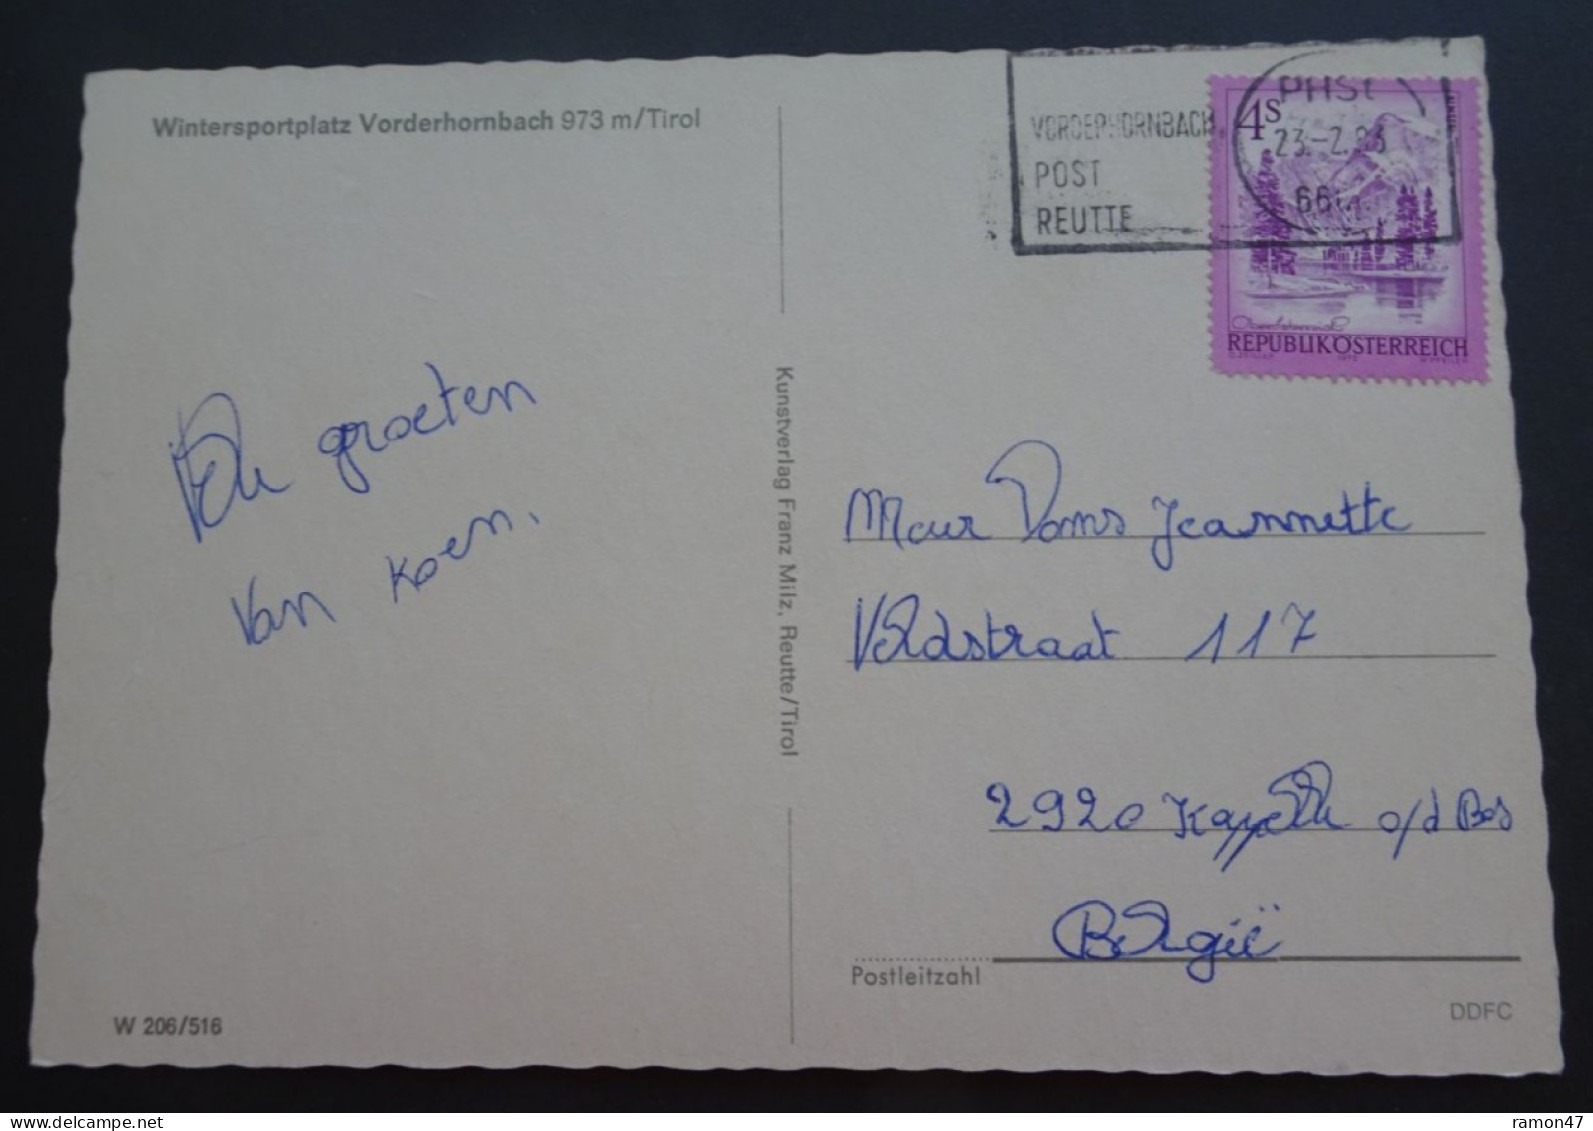 Wintersportplatz Vorderhornbach 973 m/Tirol
Vele groeten
Van Koen.
W 206/516
Kunstverlag Franz Milz, Reutte/Tirol
VORDERHORNBACH,
POST
REUTTE
PHSt
23.-2.83
4S
REPUBLIK ÖSTERREICH
Doms Jeannette
Veldstraat 117
2920 Kapelle o/d Bos
België
Postleitzahl
DDFC
www.delcampe.net
ramon47